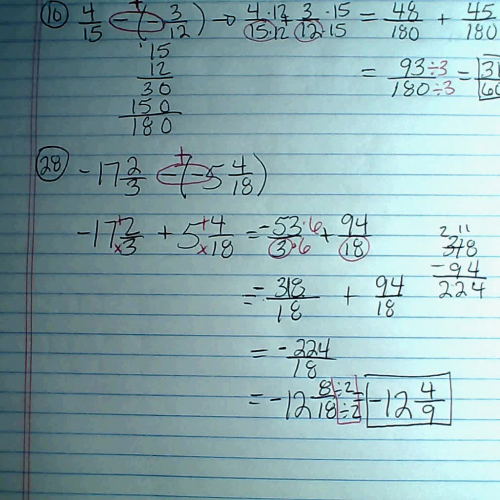 16) 4/15 - (- 3/12) → 4·12/15·12 + 3·15/12·15 = 48/180 + 45/180
15
12
30
150
180
= 93÷3/180÷3 = 31/60
28) -17 2/3 - (-5 4/18)
-17 2/3 + 5 4/18 = -53·6/3·6 + 94/18
318
-94
224
= -318/18 + 94/18
= -224/18
= -12 8÷2/18÷2 = -12 4/9